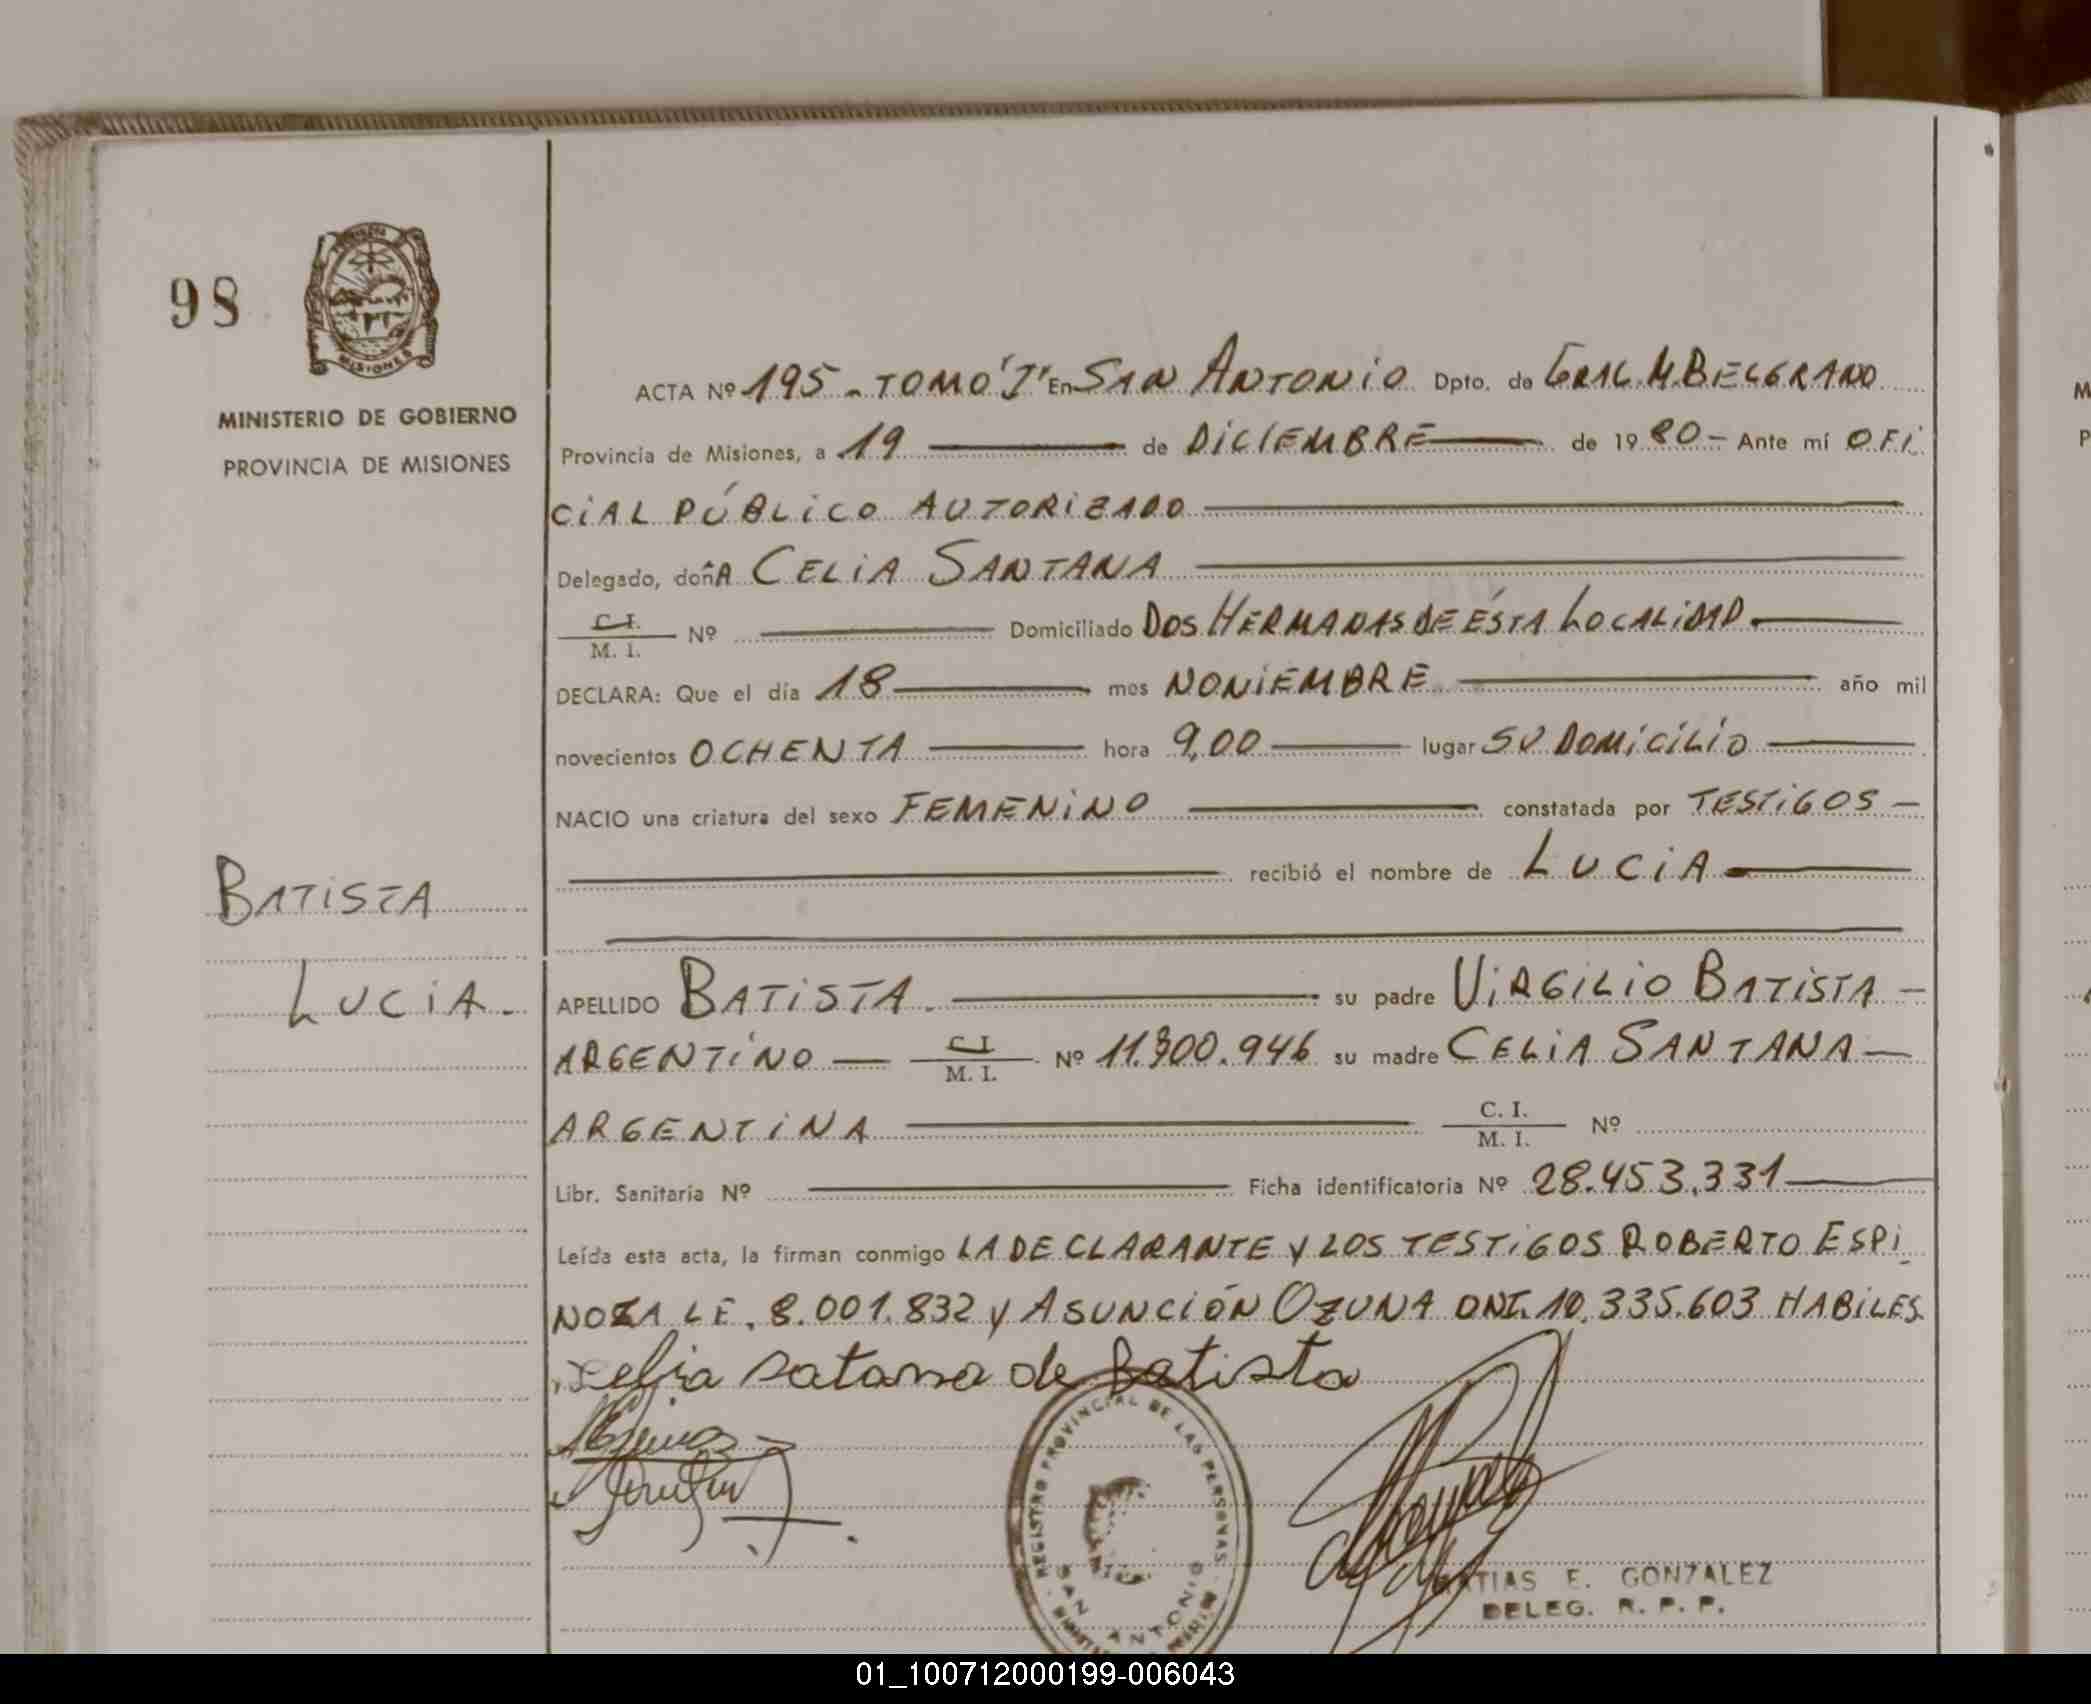 98
MISIONES
MINISTERIO DE GOBIERNO
PROVINCIA DE MISIONES
BATISTA
LUCIA.
ACTA Nº 195 - TOMO "I" En SAN ANTONIO Dpto. de GRAL. M. BELGRANO
Provincia de Misiones, a 19 de DICIEMBRE de 1980 - Ante mí OFI
CIAL PÚBLICO AUTORIZADO
Delegado, doñA CELIA SANTANA
C. I.
M. I. Nº Domiciliado DOS HERMANAS DE ÉSTA LOCALIDAD.
DECLARA: Que el día 18 mes NONIEMBRE año mil
novecientos OCHENTA hora 9,00 lugar SU DOMICILIO
NACIO una criatura del sexo FEMENINO constatada por TESTIGOS -
recibió el nombre de LUCIA
APELLIDO BATISTA. su padre VIRGILIO BATISTA -
ARGENTINO — C. I. / M. I. Nº 11.300.946 su madre CELIA SANTANA —
ARGENTINA C. I. / M. I. Nº
Libr. Sanitaria Nº Ficha identificatoria Nº 28.453.331
Leída esta acta, la firman conmigo LA DECLARANTE Y LOS TESTIGOS ROBERTO ESPI
NOZA LE. 8.001.832 Y ASUNCIÓN OZUNA DNI. 10.335.603 HABILES.
Celia satana de Batista
REGISTRO PROVINCIAL DE LAS PERSONAS
SAN ANTONIO
MATIAS E. GONZALEZ
DELEG. R. P. P.
01_100712000199-006043